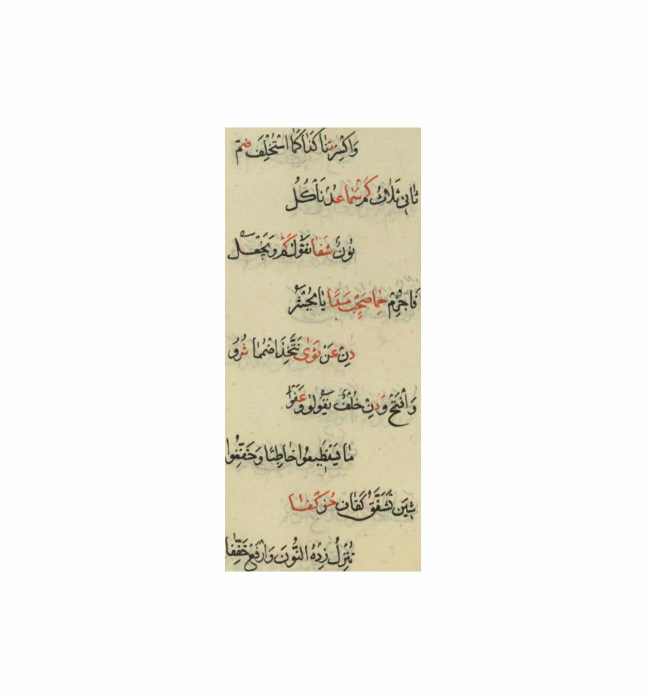 وَاكْسِرْ ثَنَا كَذَا كَمَا اسْتُخْلِفَ صُمّ
ثَانِي ثَلَاثُ كَمْ سَمَا عُدْ نَأْكُلُ
نُونٌ شَفَا نَقُولُ كَمْ وَيَجْعَلْ
فَاجْزِمْ حِمَا صَحْبٍ مَدًا يَا نَحْشُرُ
دِنْ عَنْ ثَوَى نَتَّخِذَ اضْمُمَا ثُرُو
وَافْتَحْ وَدِنْ خُلْفٌ يَقُولُو وَعَفَوْا
مَا يَسْتَطِيعُوا خَاطِبًا وَخَفَّفُوا
شِينَ تَشَقَّقُ كَقَافَ حُزْ كَفَا
نُنْزِلُ زِدْهُ النُّونَ وَارْفَعْ خَفِّفَا